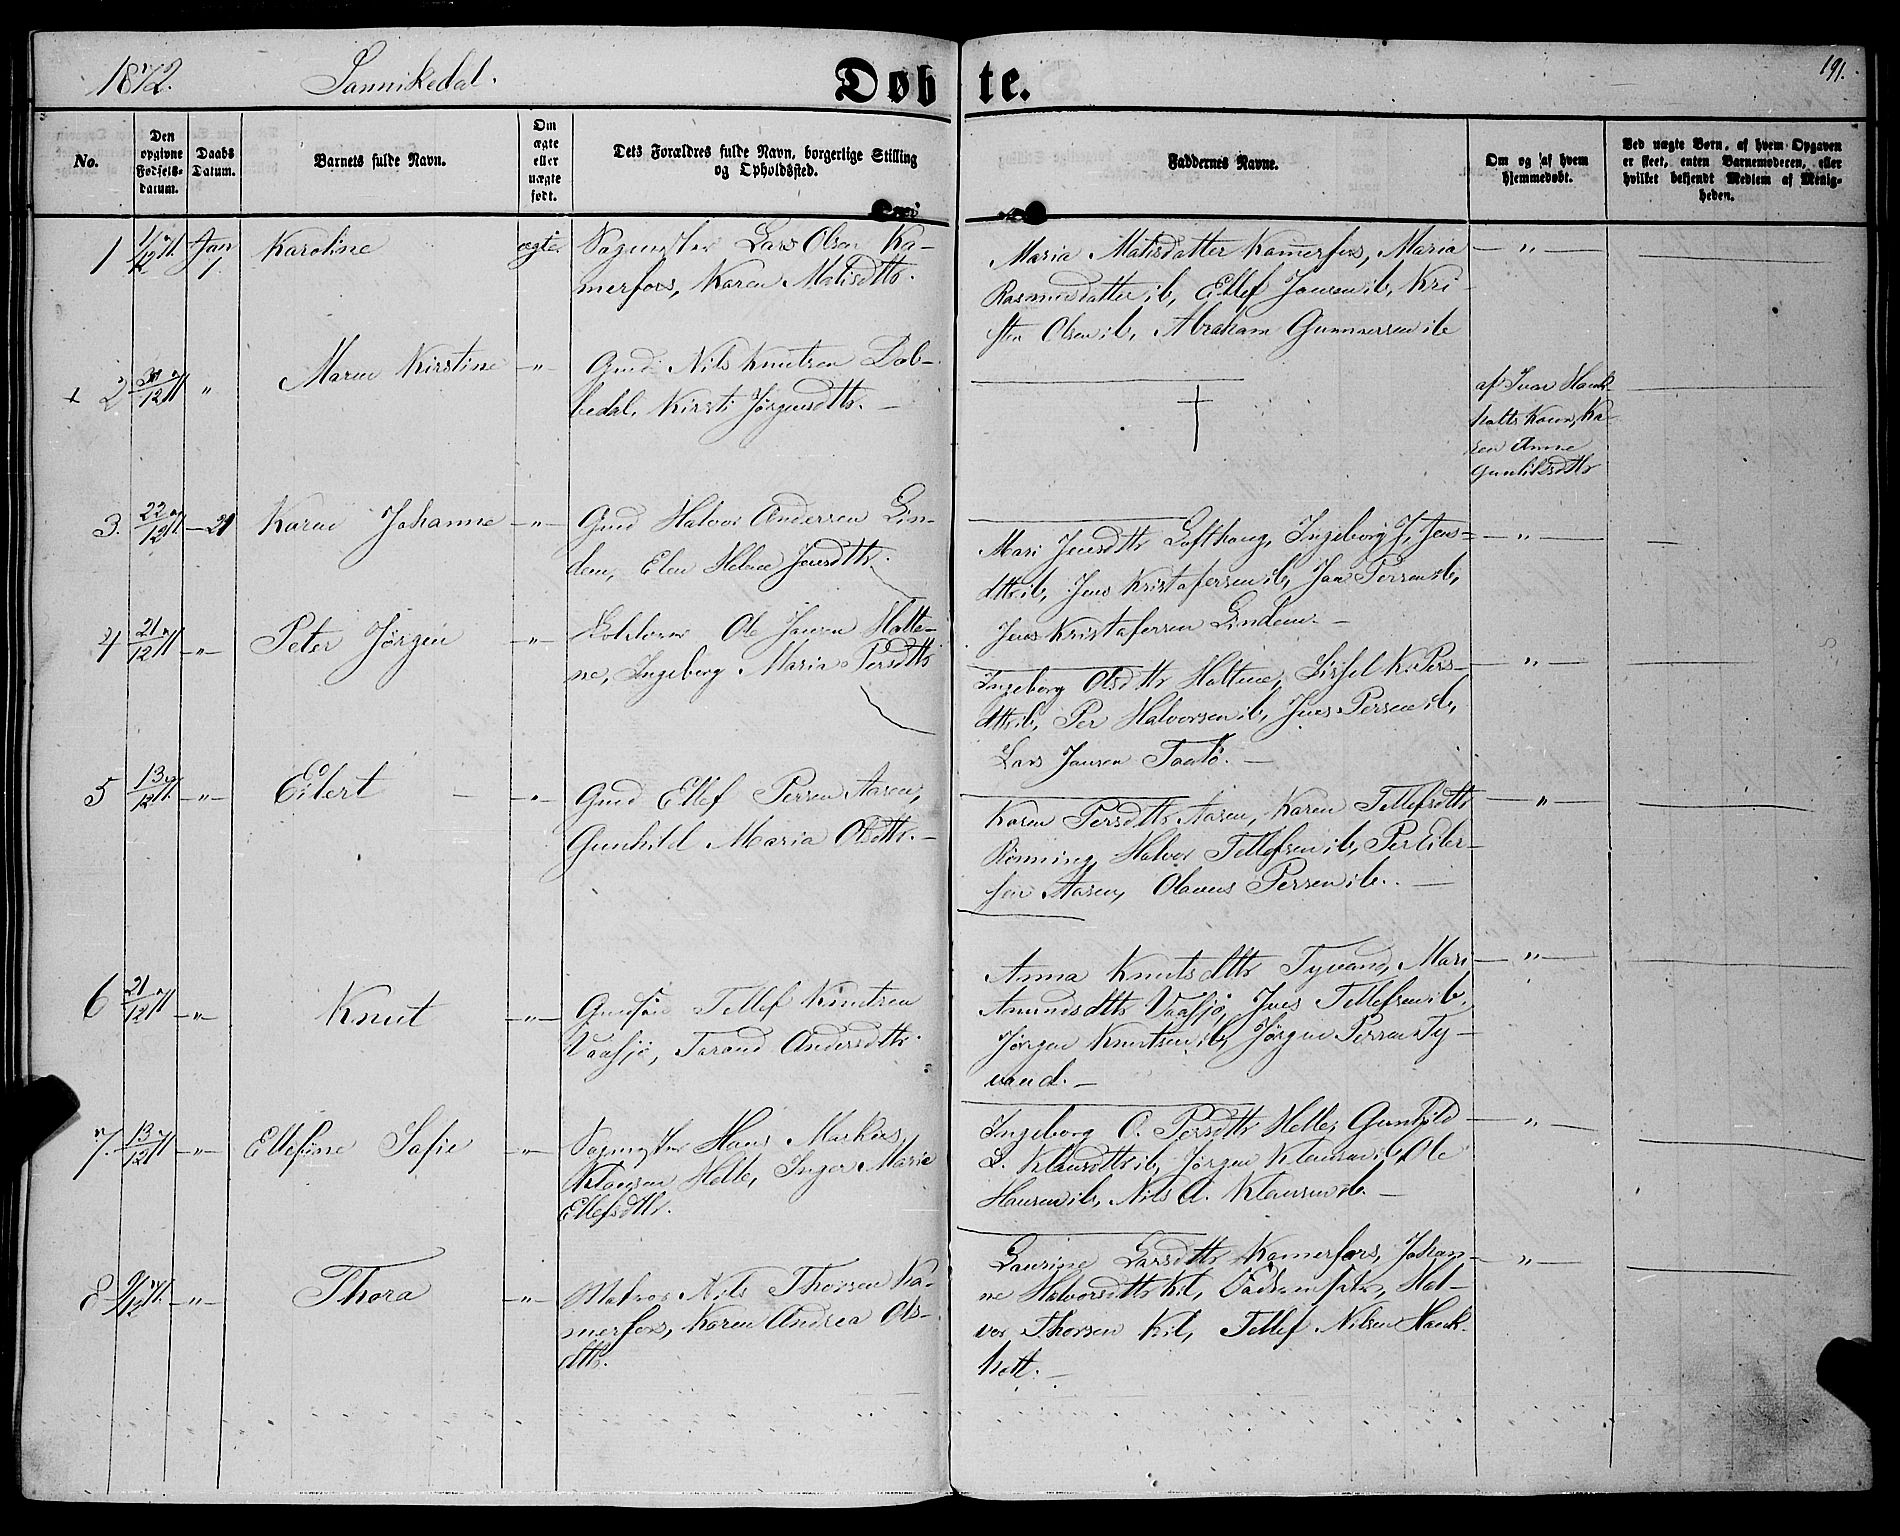 1872.
Sannikedal.
Døbte.
191.
No.
Den opgivne Fødsels-datum.
Daabs Datum.
Barnets fulde Navn.
Om ægte eller uægte født.
Dets Forældres fulde Navn, borgerlige Stilling og Opholdssted.
Faddernes Navne.
Om og af hvem hjemmedøbt.
Ved uægte Børn, af hvem Opgaven er skeet, enten Barnemoderen, eller hvilket bekjendt Medlem af Menigheden.
1 1/12 71. Jan 1. Karoline ægte
Sagmester Lars Olsen Ka-
merfors, Karen Matisdttr.
Maria Matisdatter Kamerfors, Maria
Rasmusdatter ib, Ellef Jensen ib, Kri-
sten Olsen ib, Abraham Gunnersen ib
— " —
+ 2 /12 71 " Maren Kirstine — " —
Gmd. Nils Knutsen Dob-
bedal, Kirsti Jørgensdttr. —
†
af Ivar Hauk-
holts Kone, Ka-
ren Anne
Gunliksdttr
3. 22/12 71. — 21 Karen Johanne — " —
Gmd Halvor Andersen Lin-
dem, Elen Helene Jensdttr.
Mari Jensdttr Lofthaug, Ingeborg J. Jens-
dttr ib, Jens Kristofersen ib, Jan Persen ib,
Jens Kristofersen Lindem. —
— " —
4 21/12 71 — " — Peter Jørgen — " —
Ole Jansen Holte-
ne, Ingeborg Maria Persdttr
Ingeborg Olsdttr Holtene, Sissel K. Pers-
dttr ib, Per Halvorsen ib, Jens Persen ib,
Lars Jansen Taatø. —
— " —
5 13/12 71. — " — Eilert — " —
Gmd Ellef Persen Aasen,
Gunhild Maria Olsdttr. —
Karen Persdttr Aasen, Karen Tellefsdttr
Rønning, Halvor Tellefsen ib, Per Eiler-
sen Aasen, Olaves Persen ib. —
— " —
6 21/12 71 — " — Knut — " —
Tellef Knutsen
Vaasjø, Torand Andersdttr.
Anna Knutsdttr Tyvand, Mari
Amundsdttr Vaasjø, Jens Tellefsen ib,
Jørgen Knutsen ib, Jørgen Persen Ty-
vand. —
— " —
7. 13/12 71 — " — Ellefine Sofie — " —
Sagmester Hans Markus
Klausen Helle, Inger Marie
Ellefsdttr.
Ingeborg O. Persdttr Helle, Gunhild
L. Klausdttr ib, Jørgen Klausen ib, Ole
Hansen ib, Nils A. Klausen ib. —
— " —
8 9/12 71. — " — Thora — " —
Matros Nils Thorsen Ka-
merfors, Karen Andrea Ols-
dttr.
Laurine Larsdttr Kamerfors, Johan-
ne Halvorsdttr Kil, Hal-
vor Thorsen Kil, Tellef Nilsen Hauk-
holt. —
— " —